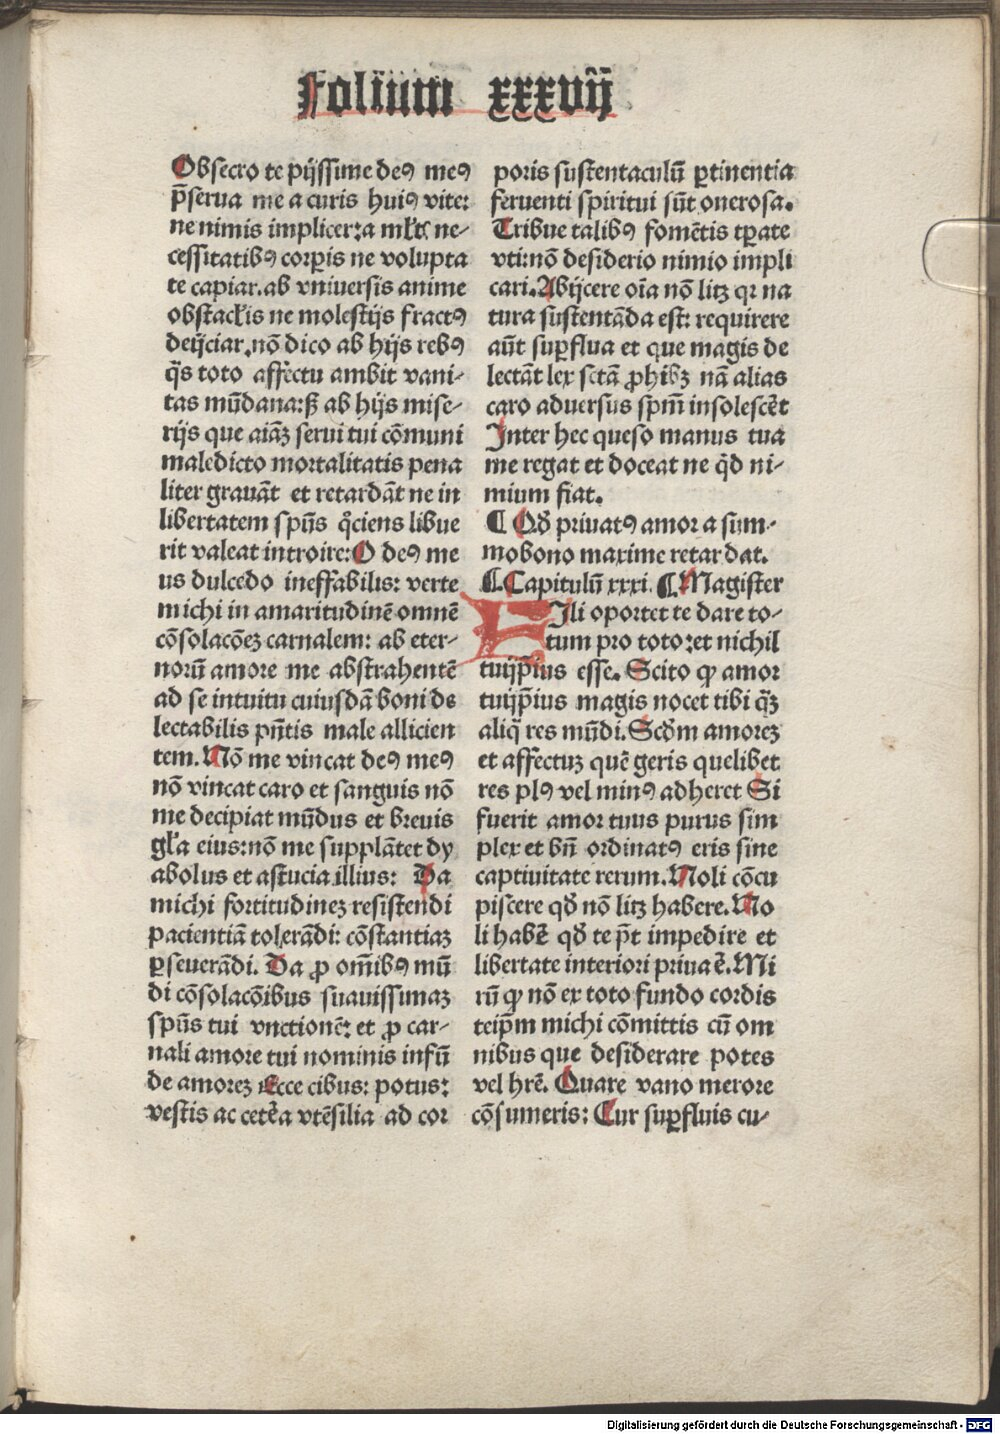 Folium xxxvij
Obsecro te pijssime deꝰ meꝰ
p̄serua me a curis huiꝰ vite:
ne nimis implicer: a ml̓tꝭ ne-
cessitatibꝰ corꝑis ne volupta
te capiar. ab vniuersis anime
obstacl̓is ne molestijs fractꝰ
deijciar. nō dico ab hijs rebꝰ
q̄s toto affectu ambit vani-
tas mūdana: sꝫ ab hijs mise-
rijs que aiāꝫ serui tui cōmuni
maledicto mortalitatis pena
liter grauāt et retardāt ne in
libertatem spūs qͦciens libue
rit valeat introire: O deꝰ me
us dulcedo ineffabilis: verte
michi in amaritudinē omnē
cōsolacōeꝫ carnalem: ab eter-
norū amore me abstrahentē
ad se intuitu cuiusdā boni de
lectabilis pn̄tis male allicien
tem. Nō me vincat deꝰ meꝰ
nō vincat caro et sanguis nō
me decipiat mūdus et breuis
gl̓a eius: nō me supplātet dy
abolus et astucia illius: Da
michi fortitudineꝫ resistendi
pacientiā tolerādi: cōstantiaꝫ
ꝑseuerādi. Da ꝓ om̄ibꝰ mū
di cōsolacōibus suauissimaꝫ
spūs tui vnctionē: et ꝓ car-
nali amore tui nominis infū
de amoreꝫ Ecce cibus: potus:
vestis ac cetēa vtēsilia ad cor
poris sustentaculū ꝑtinentia
feruenti spiritui sūt onerosa.
Tribue talibꝰ fomētis tꝑate
vti: nō desiderio nimio impli
cari. Abijcere oīa nō litꝫ qꝛ na
tura sustentāda est: requirere
aūt suꝑflua et que magis de
lectāt lex sctā ꝓhibꝫ nā alias
caro aduersus spm̄ insolescēt
Inter hec queso manus tua
me regat et doceat ne qͥd ni-
mium fiat.
¶ Qð priuatꝰ amor a sum-
mo bono maxime retardat.
¶ Capitulū xxxi. ¶ Magister
Fili oportet te dare to-
tum pro toto: et nichil
tuijp̄ius esse. Scito ꝙ amor
tuijp̄ius magis nocet tibi q̄ꝫ
aliq̄ res mūdi. Scðm amoreꝫ
et affectuꝫ quē geris quelibet
res plꝰ vel minꝰ adheret Si
fuerit amor tuus purus sim
plex et bn̄ ordinatꝰ eris sine
captiuitate rerum. Noli cōcu
piscere qð nō litꝫ habere. No
li habē qð te pt̄ impedire et
libertate interiori priuaē. Mi
rū ꝙ nō ex toto fundo cordis
teip̄m michi cōmittis cū om
nibus que desiderare potes
vel hr̄e. Quare vano merore
cōsumeris: Cur suꝑfluis cu-
Digitalisierung gefördert durch die Deutsche Forschungsgemeinschaft - DFG